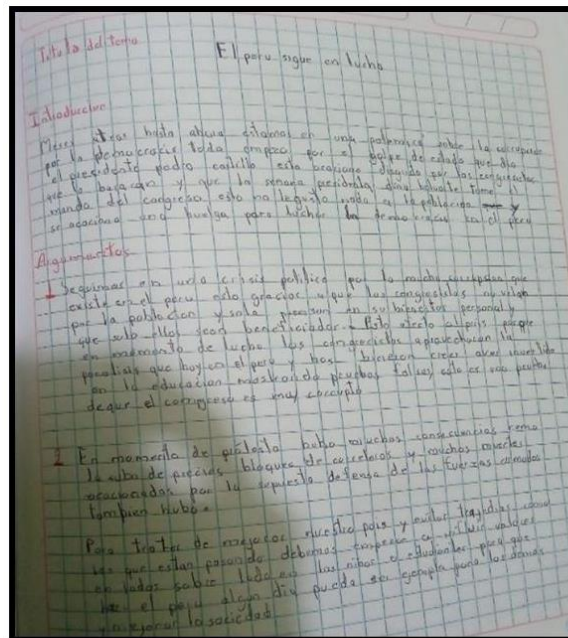 Titulo del tema
El peru sigue en lucha
Introduccion
Meses atras hasta ahora estamos en una polemica sobre la
por la democracia todo empezo por el golpe de estado que dio
el presidente pedro castillo esto ocaciono disgusto por los congresistas
que lo bajaran y que la señora presidenta dina boluarte tome el
mando del congreso esto no le gusto nada a la poblacion y
se ocaciono una huelga para luchar la democracia en el peru
Argumentos
1 Seguimos en una crisis politica por la mucha corrupcion que
existe en el peru esto gracias a que los congresistas no velan
por la poblacion y solo piensan en su bienestar personal y
que solo ellos sean beneficiados. Esto afecto al pais porque
en momento de lucha los congresistas aprovecharon la
que hoy en el peru y hos hicieron creer aver invertido
en la educacion mostrando pruebas falsas esto es una prueba
dequr el corrigreso es muy corrupto
2 En momento de protesta hubo muchas consecuencias como
la suba de precios bloqueo de carreteras y muchas muertes
ocacionadas por la supuesta defensa de las fuerzas armadas
tambien hubo.
Para tratar de mejorar nuestro pais y evitar tragedias como
las que estan pasando debemos empezar a valores
en todos sobre todo en los niños o estudiantes para que
el peru algun dia pueda ser ejemplo para los demas
y mejorar la sociedad